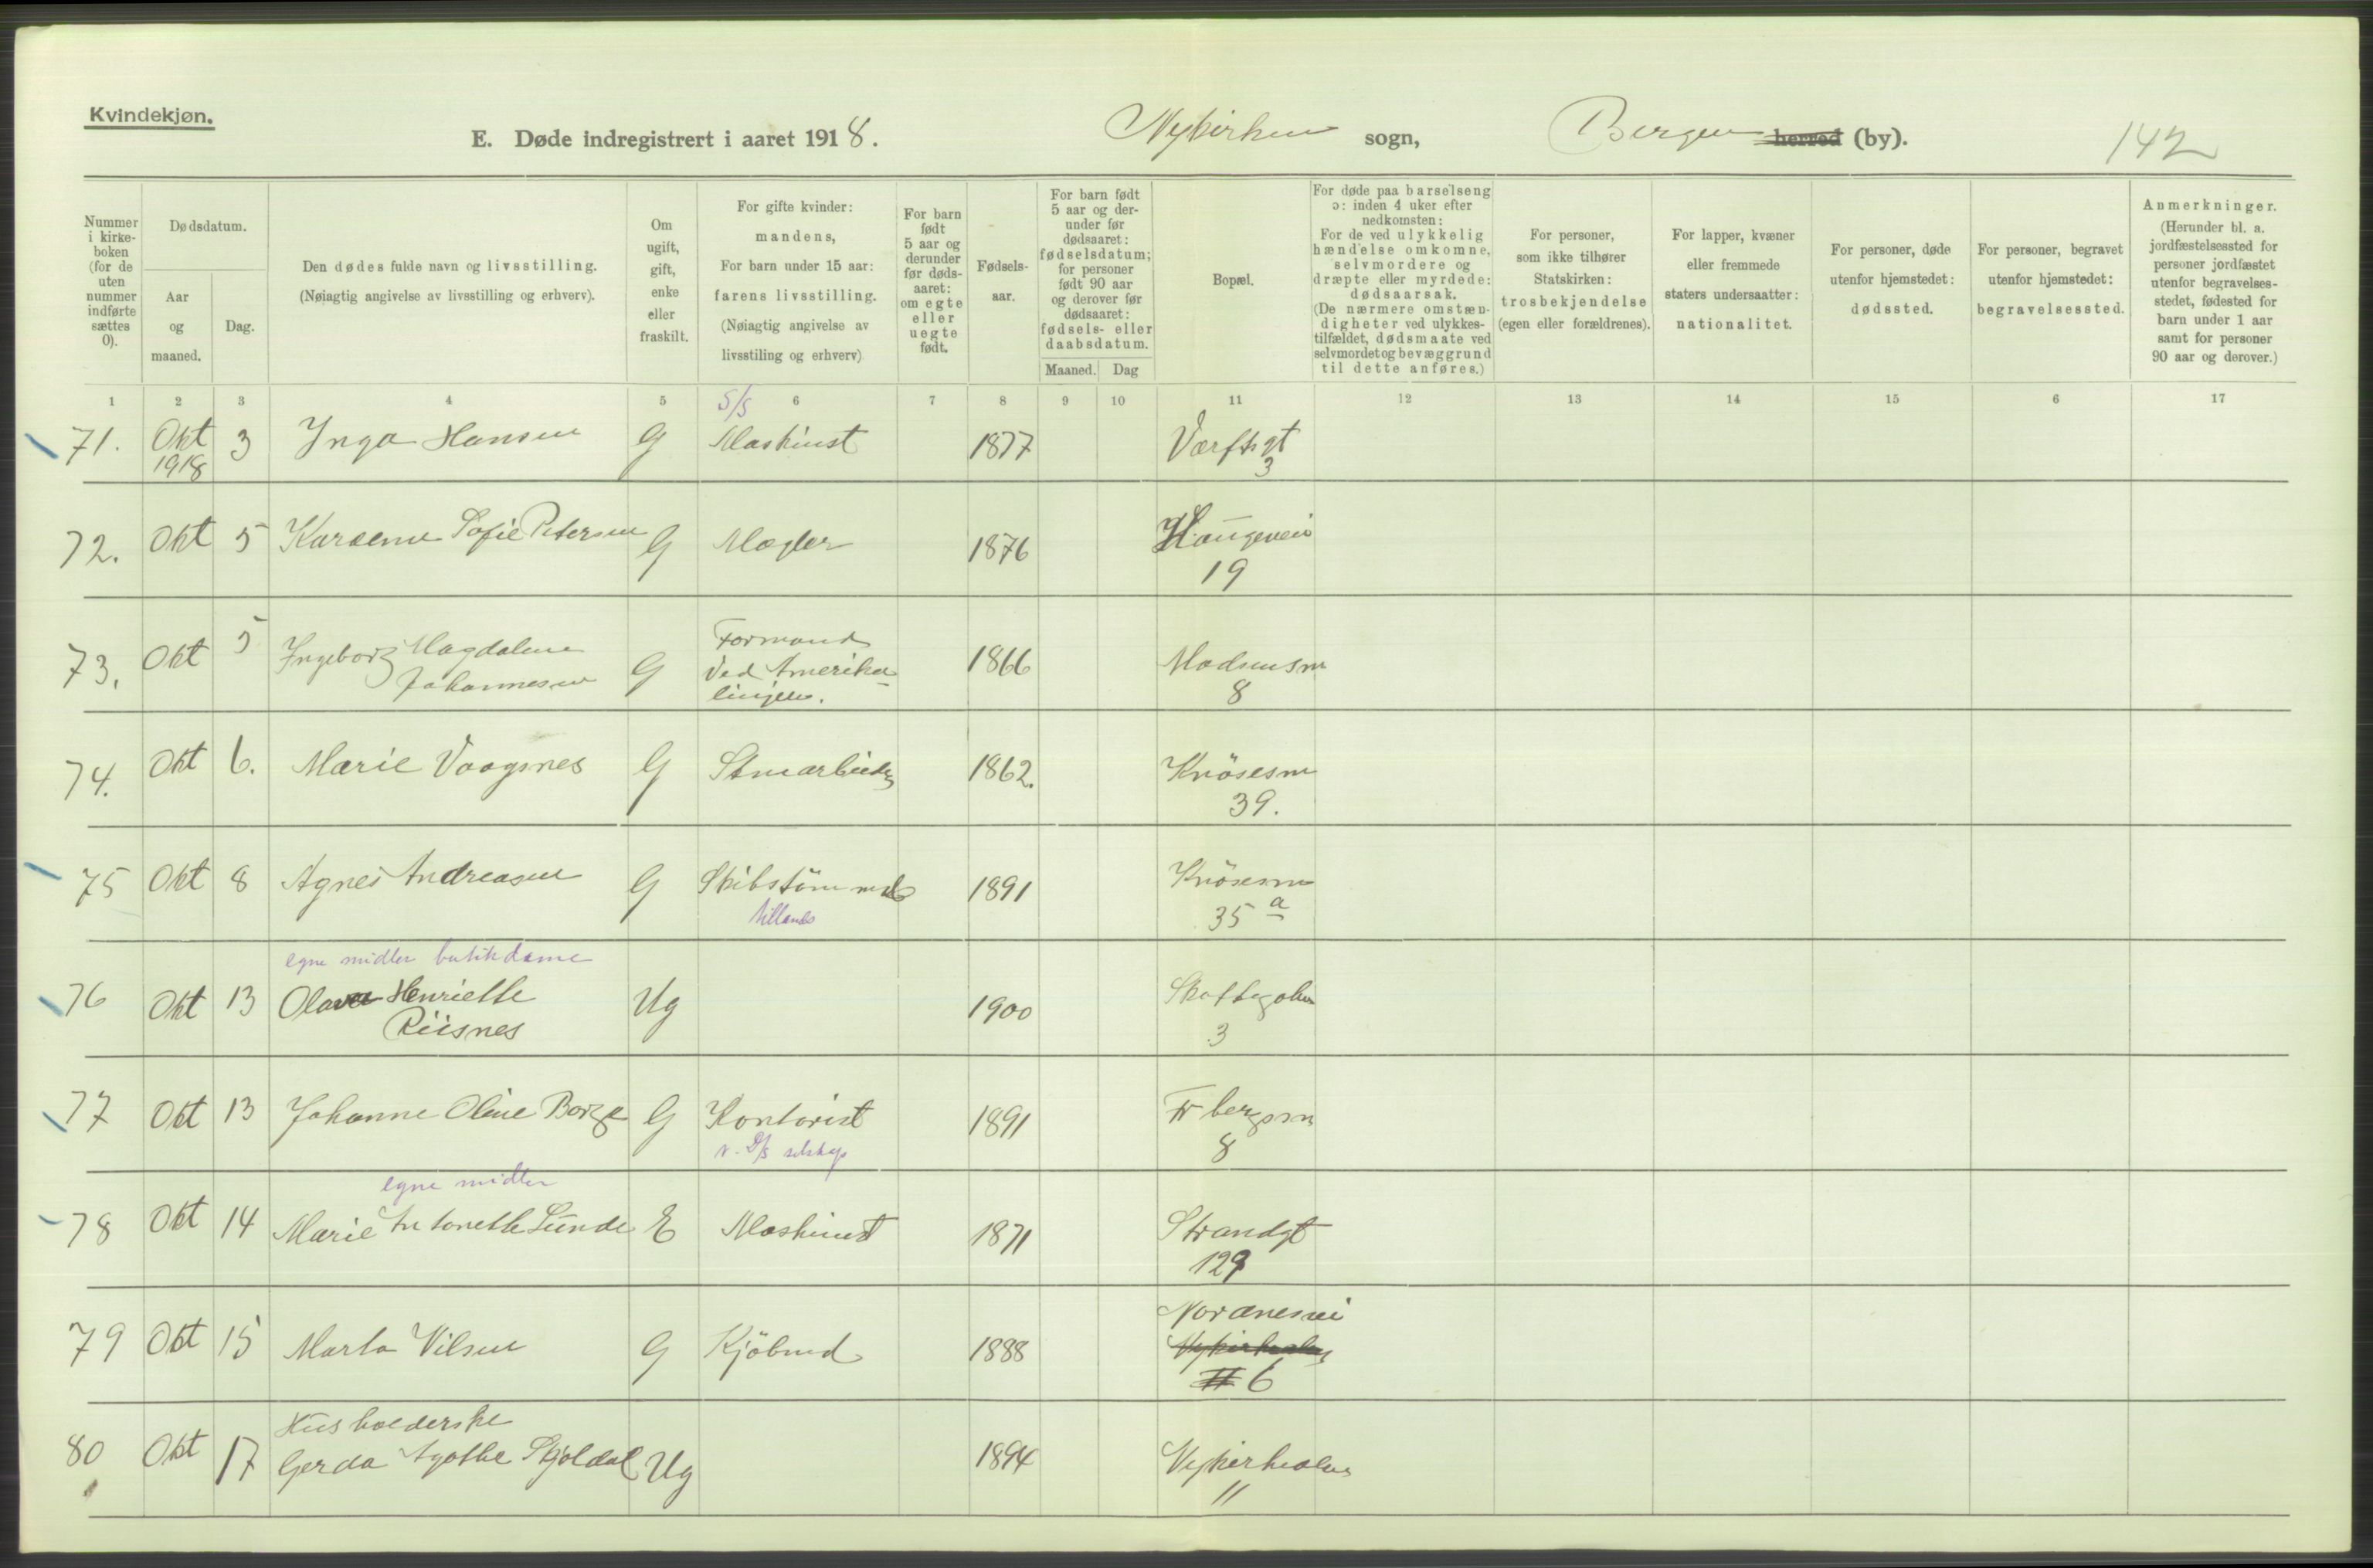 Kvindekjøn.
E. Døde indregistrert i aaret 1918. Nykirken sogn, Bergen herred (by). 142
Nummer i kirke-boken (for de uten nummer indførte sættes 0).
Dødsdatum.
Aar og maaned.
Dag.
Den dødes fulde navn og livsstilling.
(Nøiagtig angivelse av livsstilling og erhverv).
Om ugift, gift, enke eller fraskilt.
For gifte kvinder:
mandens,
For barn under 15 aar:
farens livsstilling.
(Nøiagtig angivelse av
livsstiling og erhverv)
For barn født 5 aar og derunder før døds-aaret: om egte eller uegte født.
Fødsels-aar.
For barn født 5 aar og der-under før dødsaaret: fødselsdatum; for personer født 90 aar og derover før dødsaaret: fødsels- eller daabsdatum.
Maaned. Dag
Bopæl.
For døde paa barselseng
ɔ: inden 4 uker efter
nedkomsten:
For de ved ulykkelig
hændelse omkomne,
selvmordere og
dræpte eller myrdede:
dødsaarsak.
(De nærmere omstæn-
digheter ved ulykkes-
tilfældet, dødsmaate ved
selvmordet og bevæggrund
til dette anføres.)
For personer,
som ikke tilhører
Statskirken:
trosbekjendelse
(egen eller forældrenes).
For lapper, kvæner
eller fremmede
staters undersaatter:
nationalitet.
For personer, døde
utenfor hjemstedet:
dødssted.
For personer, begravet
utenfor hjemstedet:
begravelsessted.
Anmerkninger.
(Herunder bl. a.
jordfæstelsessted for
personer jordfæstet
utenfor begravelses-
stedet, fødested for
barn under 1 aar
samt for personer
90 aar og derover.)
1 2 3 4 5 6 7 8 9 10 11 12 13 14 15 6 17
S/S
71. Okt 3 Inga Hansen G Maskinist 1877 Værftsgt
1918 3
72. Okt 5 Karoline Sofie Petersen G Mægler 1876 Haugeveien
19
73. Okt 5 Ingeborg Magdalene G Formand 1866 Madsensm
Johannesen ved Amerika-
linjen. 8
74. Okt 6. Marie Vaagsnes G Stenarbeider 1862. Knösesm
39.
75 Okt 8 Agnes Andreasen G Skibstömmerm 1891 Knösesm
tillands 35 a
egne midler butikdame
76 Okt 13 Olava Henriette Ug 1900 Skottegaten
Riisnes 3
77 Okt 13 Johanne Oline Borge G Kontorist 1891 Fr bergsm
v. D/S selskap 8
egne midler
78 Okt 14 Marie Antonette Sunde E Maskinist 1871 Strandgt
129
79 Okt 15 Marta Nilsen G Kjöbmd 1888 Nordnesvei
Nykirkealm
6
Husholderske
80 Okt 17 Gerda Agathe Skjoldal Ug 1894 Nykirkealm
11